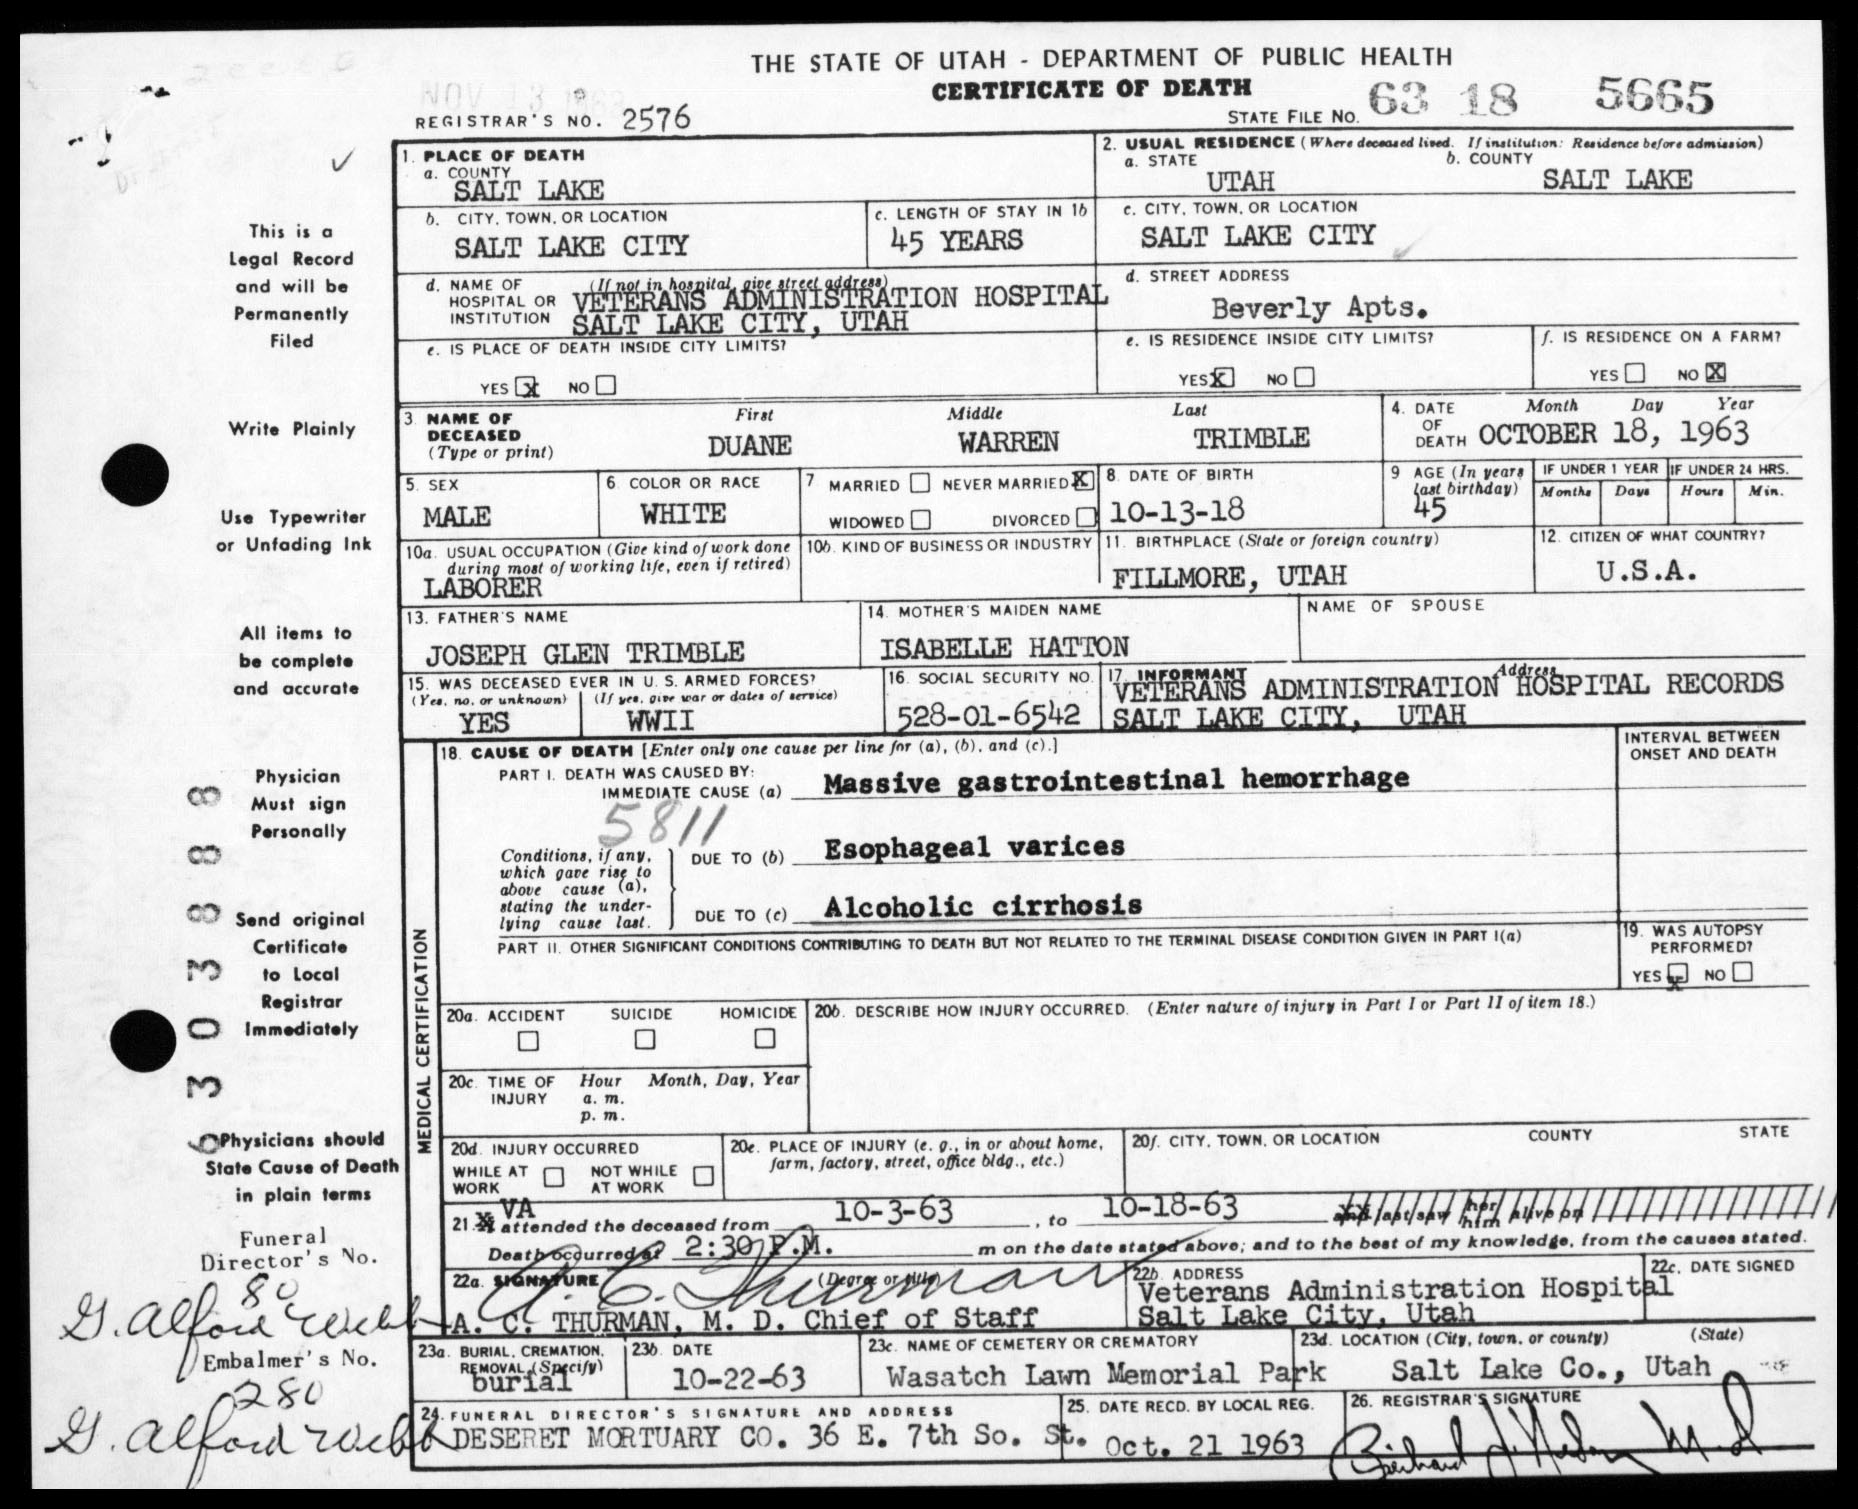 THE STATE OF UTAH - DEPARTMENT OF PUBLIC HEALTH
CERTIFICATE OF DEATH
NOV 13 1963
REGISTRAR'S NO. 2576
STATE FILE NO. 63 18 5665
This is a
Legal Record
and will be
Permanently
Filed
Write Plainly
Use Typewriter
or Unfading Ink
All items to
be complete
and accurate
Physician
Must sign
Personally
Send original
Certificate
to Local
Registrar
Immediately
Physicians should
State Cause of Death
in plain terms
6303888
Funeral
Director's No.
80
G. Alford Webb
Embalmer's No.
280
G. Alford Webb
1. PLACE OF DEATH
a. COUNTY
SALT LAKE
2. USUAL RESIDENCE (Where deceased lived. If institution: Residence before admission)
a. STATE b. COUNTY
UTAH SALT LAKE
b. CITY, TOWN, OR LOCATION
SALT LAKE CITY
c. LENGTH OF STAY IN 1b
45 YEARS
c. CITY, TOWN, OR LOCATION
SALT LAKE CITY
d. NAME OF (If not in hospital, give street address)
HOSPITAL OR VETERANS ADMINISTRATION HOSPITAL
INSTITUTION SALT LAKE CITY, UTAH
d. STREET ADDRESS
Beverly Apts.
e. IS PLACE OF DEATH INSIDE CITY LIMITS?
YES X NO
e. IS RESIDENCE INSIDE CITY LIMITS?
YES X NO
f. IS RESIDENCE ON A FARM?
YES NO X
3. NAME OF First Middle Last
DECEASED
(Type or print) DUANE WARREN TRIMBLE
4. DATE Month Day Year
OF
DEATH OCTOBER 18, 1963
5. SEX
MALE
6. COLOR OR RACE
WHITE
7 MARRIED NEVER MARRIED X
WIDOWED DIVORCED
8. DATE OF BIRTH
10-13-18
9 AGE (In years
last birthday)
45
IF UNDER 1 YEAR IF UNDER 24 HRS.
Months Days Hours Min.
10a. USUAL OCCUPATION (Give kind of work done
during most of working life, even if retired)
LABORER
10b. KIND OF BUSINESS OR INDUSTRY
11. BIRTHPLACE (State or foreign country)
FILLMORE, UTAH
12. CITIZEN OF WHAT COUNTRY?
U.S.A.
13. FATHER'S NAME
JOSEPH GLEN TRIMBLE
14. MOTHER'S MAIDEN NAME
ISABELLE HATTON
NAME OF SPOUSE
15. WAS DECEASED EVER IN U. S. ARMED FORCES?
(Yes, no, or unknown) (If yes, give war or dates of service)
YES WWII
16. SOCIAL SECURITY NO.
528-01-6542
17. INFORMANT Address
VETERANS ADMINISTRATION HOSPITAL RECORDS
SALT LAKE CITY, UTAH
MEDICAL CERTIFICATION
18. CAUSE OF DEATH [Enter only one cause per line for (a), (b), and (c).]
INTERVAL BETWEEN
ONSET AND DEATH
PART I. DEATH WAS CAUSED BY:
IMMEDIATE CAUSE (a) Massive gastrointestinal hemorrhage
5811
Conditions, if any,
which gave rise to
above cause (a),
stating the under-
lying cause last.
DUE TO (b) Esophageal varices
DUE TO (c) Alcoholic cirrhosis
PART II. OTHER SIGNIFICANT CONDITIONS CONTRIBUTING TO DEATH BUT NOT RELATED TO THE TERMINAL DISEASE CONDITION GIVEN IN PART I(a)
19. WAS AUTOPSY
PERFORMED?
YES X NO
20a. ACCIDENT SUICIDE HOMICIDE
20b. DESCRIBE HOW INJURY OCCURRED. (Enter nature of injury in Part I or Part II of item 18.)
20c. TIME OF Hour Month, Day, Year
INJURY a. m.
p. m.
20d. INJURY OCCURRED
WHILE AT NOT WHILE
WORK AT WORK
20e. PLACE OF INJURY (e. g., in or about home,
farm, factory, street, office bldg., etc.)
20f. CITY, TOWN, OR LOCATION COUNTY STATE
VA
21. I attended the deceased from 10-3-63, to 10-18-63 and last saw her him alive on
Death occurred at 2:30 P.M. m on the date stated above; and to the best of my knowledge, from the causes stated.
22a. SIGNATURE (Degree or title)
A. C. Thurman
A. C. THURMAN, M. D. Chief of Staff
22b. ADDRESS
Veterans Administration Hospital
Salt Lake City, Utah
22c. DATE SIGNED
23a. BURIAL, CREMATION,
REMOVAL (Specify)
burial
23b. DATE
10-22-63
23c. NAME OF CEMETERY OR CREMATORY
Wasatch Lawn Memorial Park
23d. LOCATION (City, town, or county) (State)
Salt Lake Co., Utah
24. FUNERAL DIRECTOR'S SIGNATURE AND ADDRESS
DESERET MORTUARY CO. 36 E. 7th So. St.
25. DATE RECD. BY LOCAL REG.
Oct. 21 1963
26. REGISTRAR'S SIGNATURE
M.D